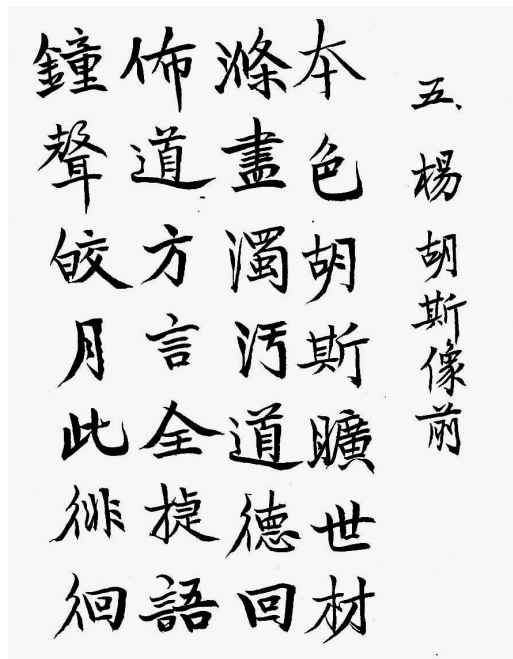 五、楊胡斯像前
本色胡斯曠世材
滌盡濁汚道德回
佈道方言全捷語
鐘聲皎月此徘徊